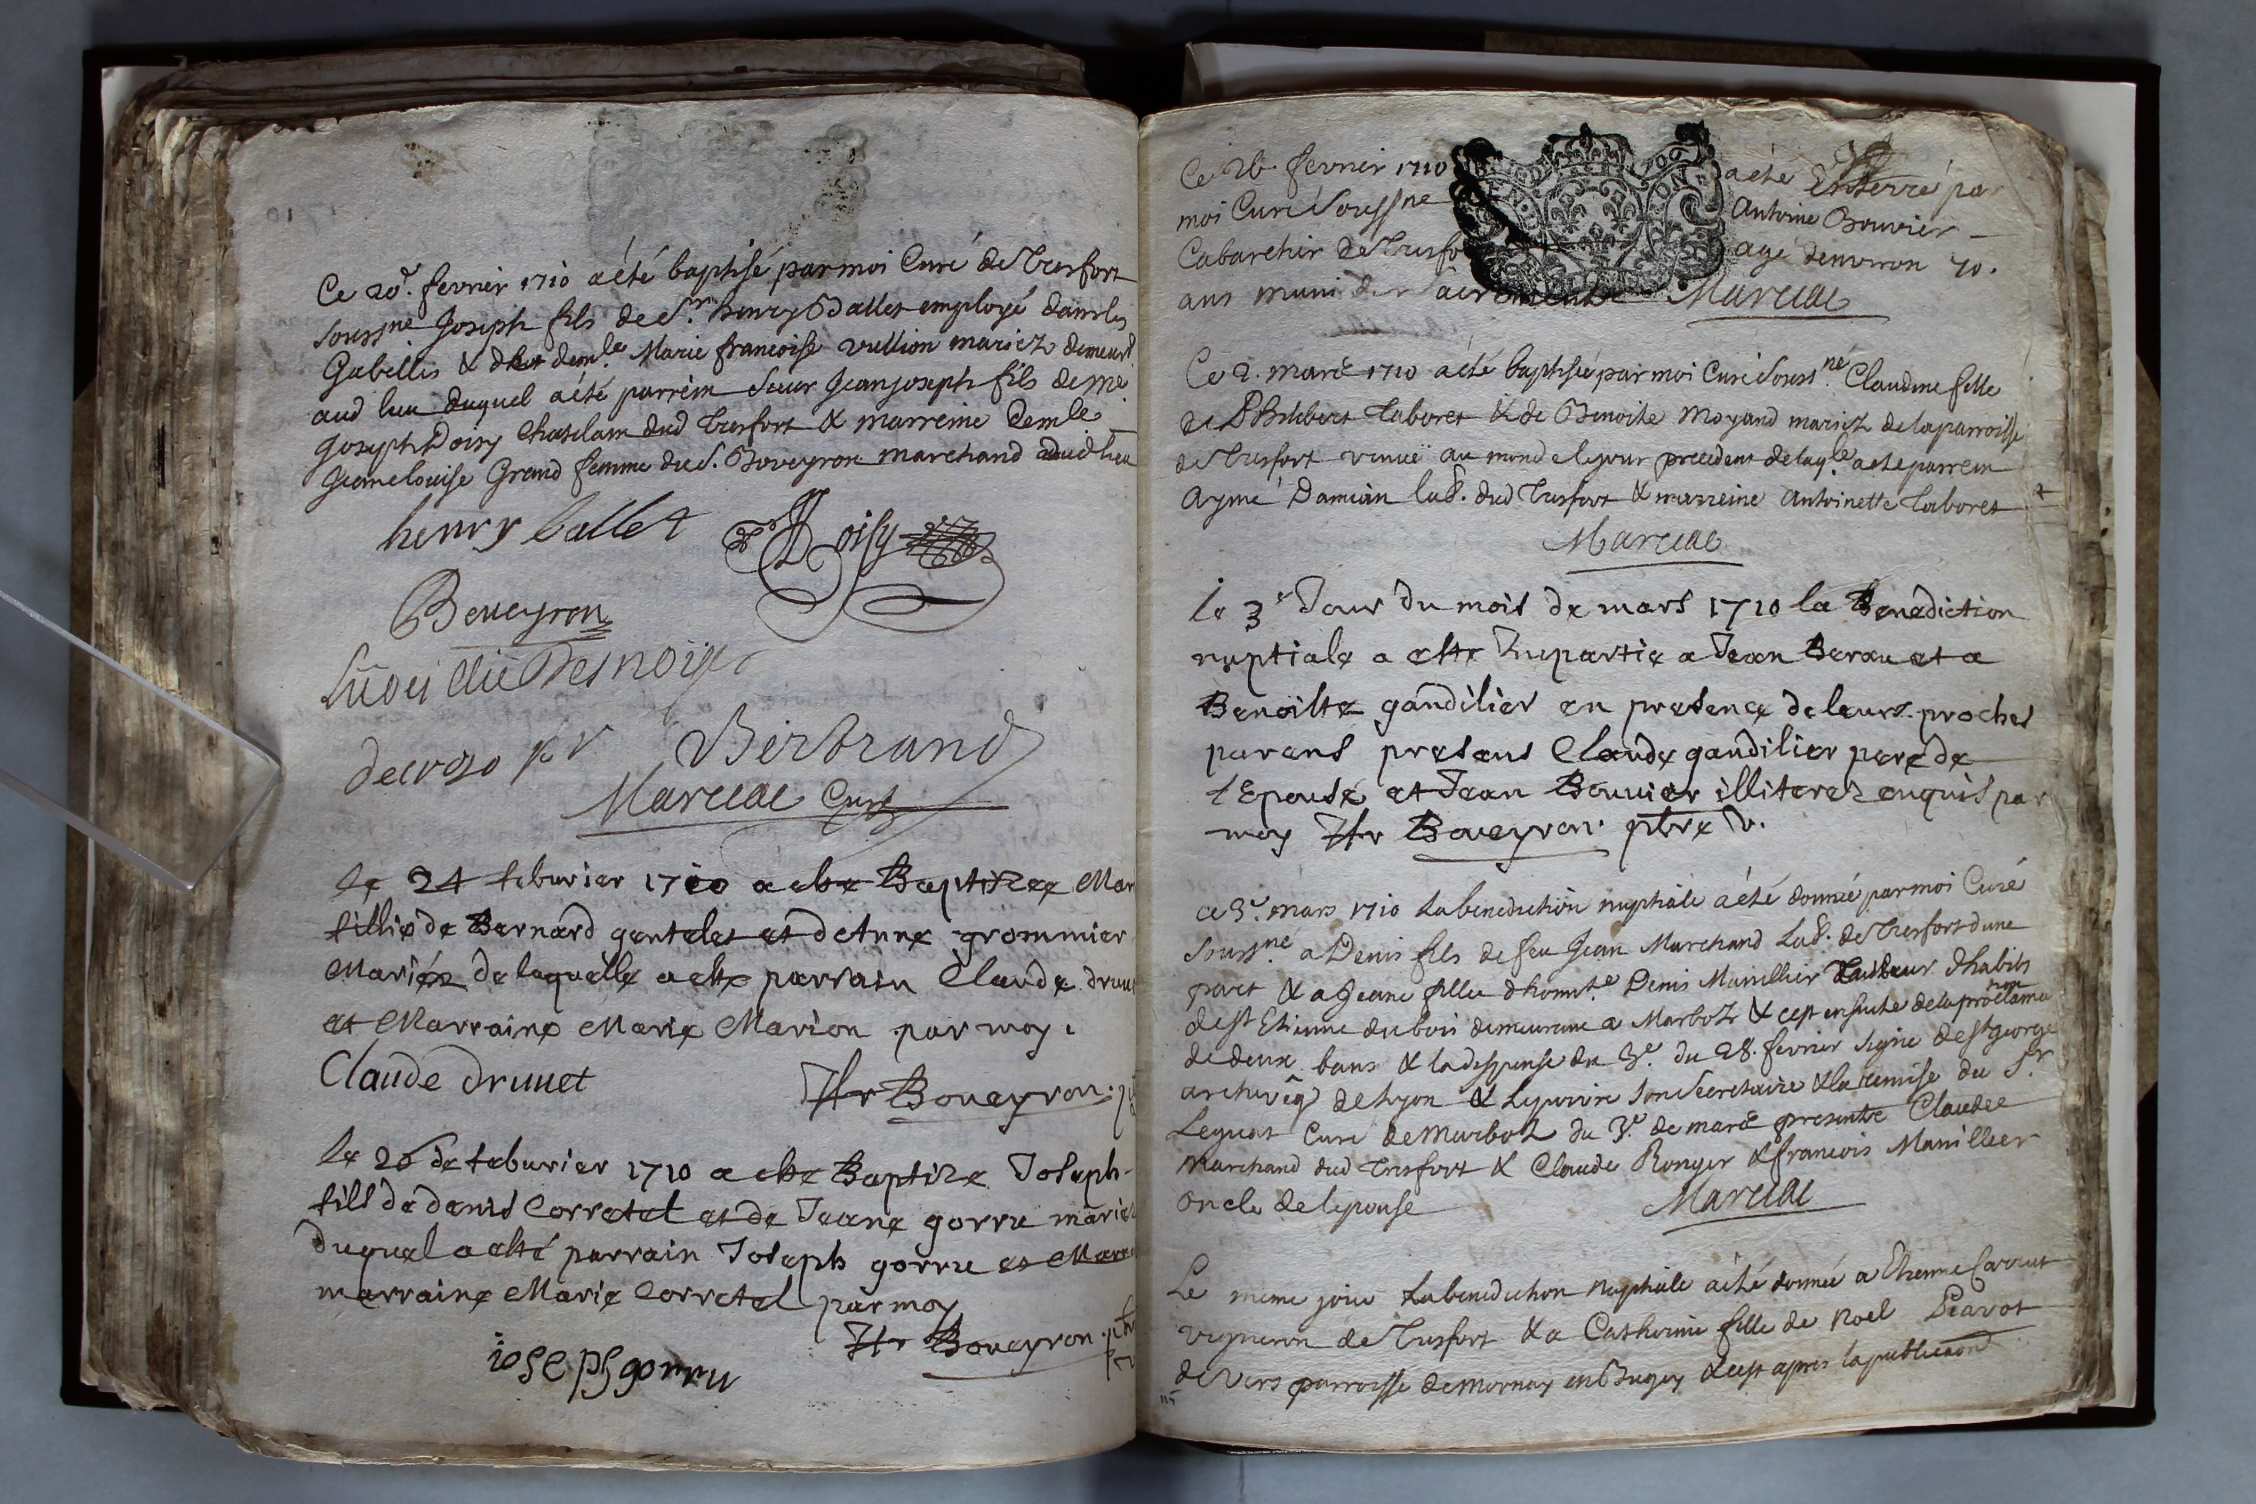 Ce 20e. fevrier 1710 a été baptisé par moi Curé de Trefort
soussne Joseph fils de Sr. henry Ballet employé dans les
Gabelles & de demle Marie francoise vullion mariez demeurt
aud lieu duquel a été parrein Sieur Jean joseph fils de me
Joseph Doisy Chatelain dud Trefort & marreine Demle
Jeane louise Grand femme du S. Boveyron marchand dudlieu
henry ballet
Doisy
Boveyron
Bertrand
Marciac Curé
Le 24 feburier 1710 a este Baptizee Mar
fillie de Bernard genteles et de Anne grommier
Mariéz de laquelle a este parrain Claude druet
et Marraine Marie Marion par moy.
Claude druuet
Hr Boueyron.
Le 26 de feburier 1710 a este Baptize Joseph
fils de denis Corretel et de Jeane gorru mariez
Duquel a esté parrain Joseph gorru et Marr
marraine Marie Corretel par moy
Hr Boueyron. ptre
ioseph gorru
Ce 26 fevrier 1710 a été Enterré par
moi Curé soussne Antoine Bouvier
Cabaretier de Trefort agé denviron 70.
ans muni des sacrements Marciac
Ce 2. mars 1710 a été baptisée par moi Curé souss.né Claudine fille
de Philibert Taboret & de Benoite Moyand mariez de la parroisse
de Trefort venuë au monde le jour precedent de laqle a ete parrein
Aymé Damian lab. dud Trefort & marreine Antoinette Taboret
Marciac
Le 3e Jour du mois de mars 1710 la Benediction
nuptiale a este Impartie a Jean Berau et a
Benoiste gandilier en presence de leurs proches
parens presens Claude gandilier pere de
l'Epouse et Jean Bouuier illiterez enquis par
moy Hr Boueyron ptre v.
ce 3e. mars 1710 la benediction nuptiale a été donnée par moi Curé
souss.né a Denis fils de feu Jean Marchand Lab. de Trefort dune
part & a Jeane fille dhonnte Denis Manillier Tailleur dhabits
de st Etienne du bois demeurant a Marboz & cest ensuite de la proclama
tion
de deux bans & la dispense du 3e. du 28. fevrier signé de st george
archevêq de Lyon & son secretaire & la remise du Sr.
Leguat Curé de Marboz du 3e. de mars presents Claude
Marchand dud Trefort & Claude Ronger & francois Manillier
oncle de lepouse Marciac
Le meme jour la benediction nuptiale a été donnée a Etienne Carrut
vigneron de Trefort & a Catherine fille de Noel Pravot
de Vers parroisse de Mornay en Bugey & cest apres la publicaon